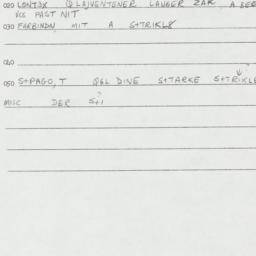 020 LONTSX QLAJVENTENER LANGER ZAK, A BER
VOS PAST NIT
030 FARBINDN MIT A S+TRIKL8
040
050 S+PAGO,T Q6L DINE S+TARKE S+TRIKL
MISC DER S+1